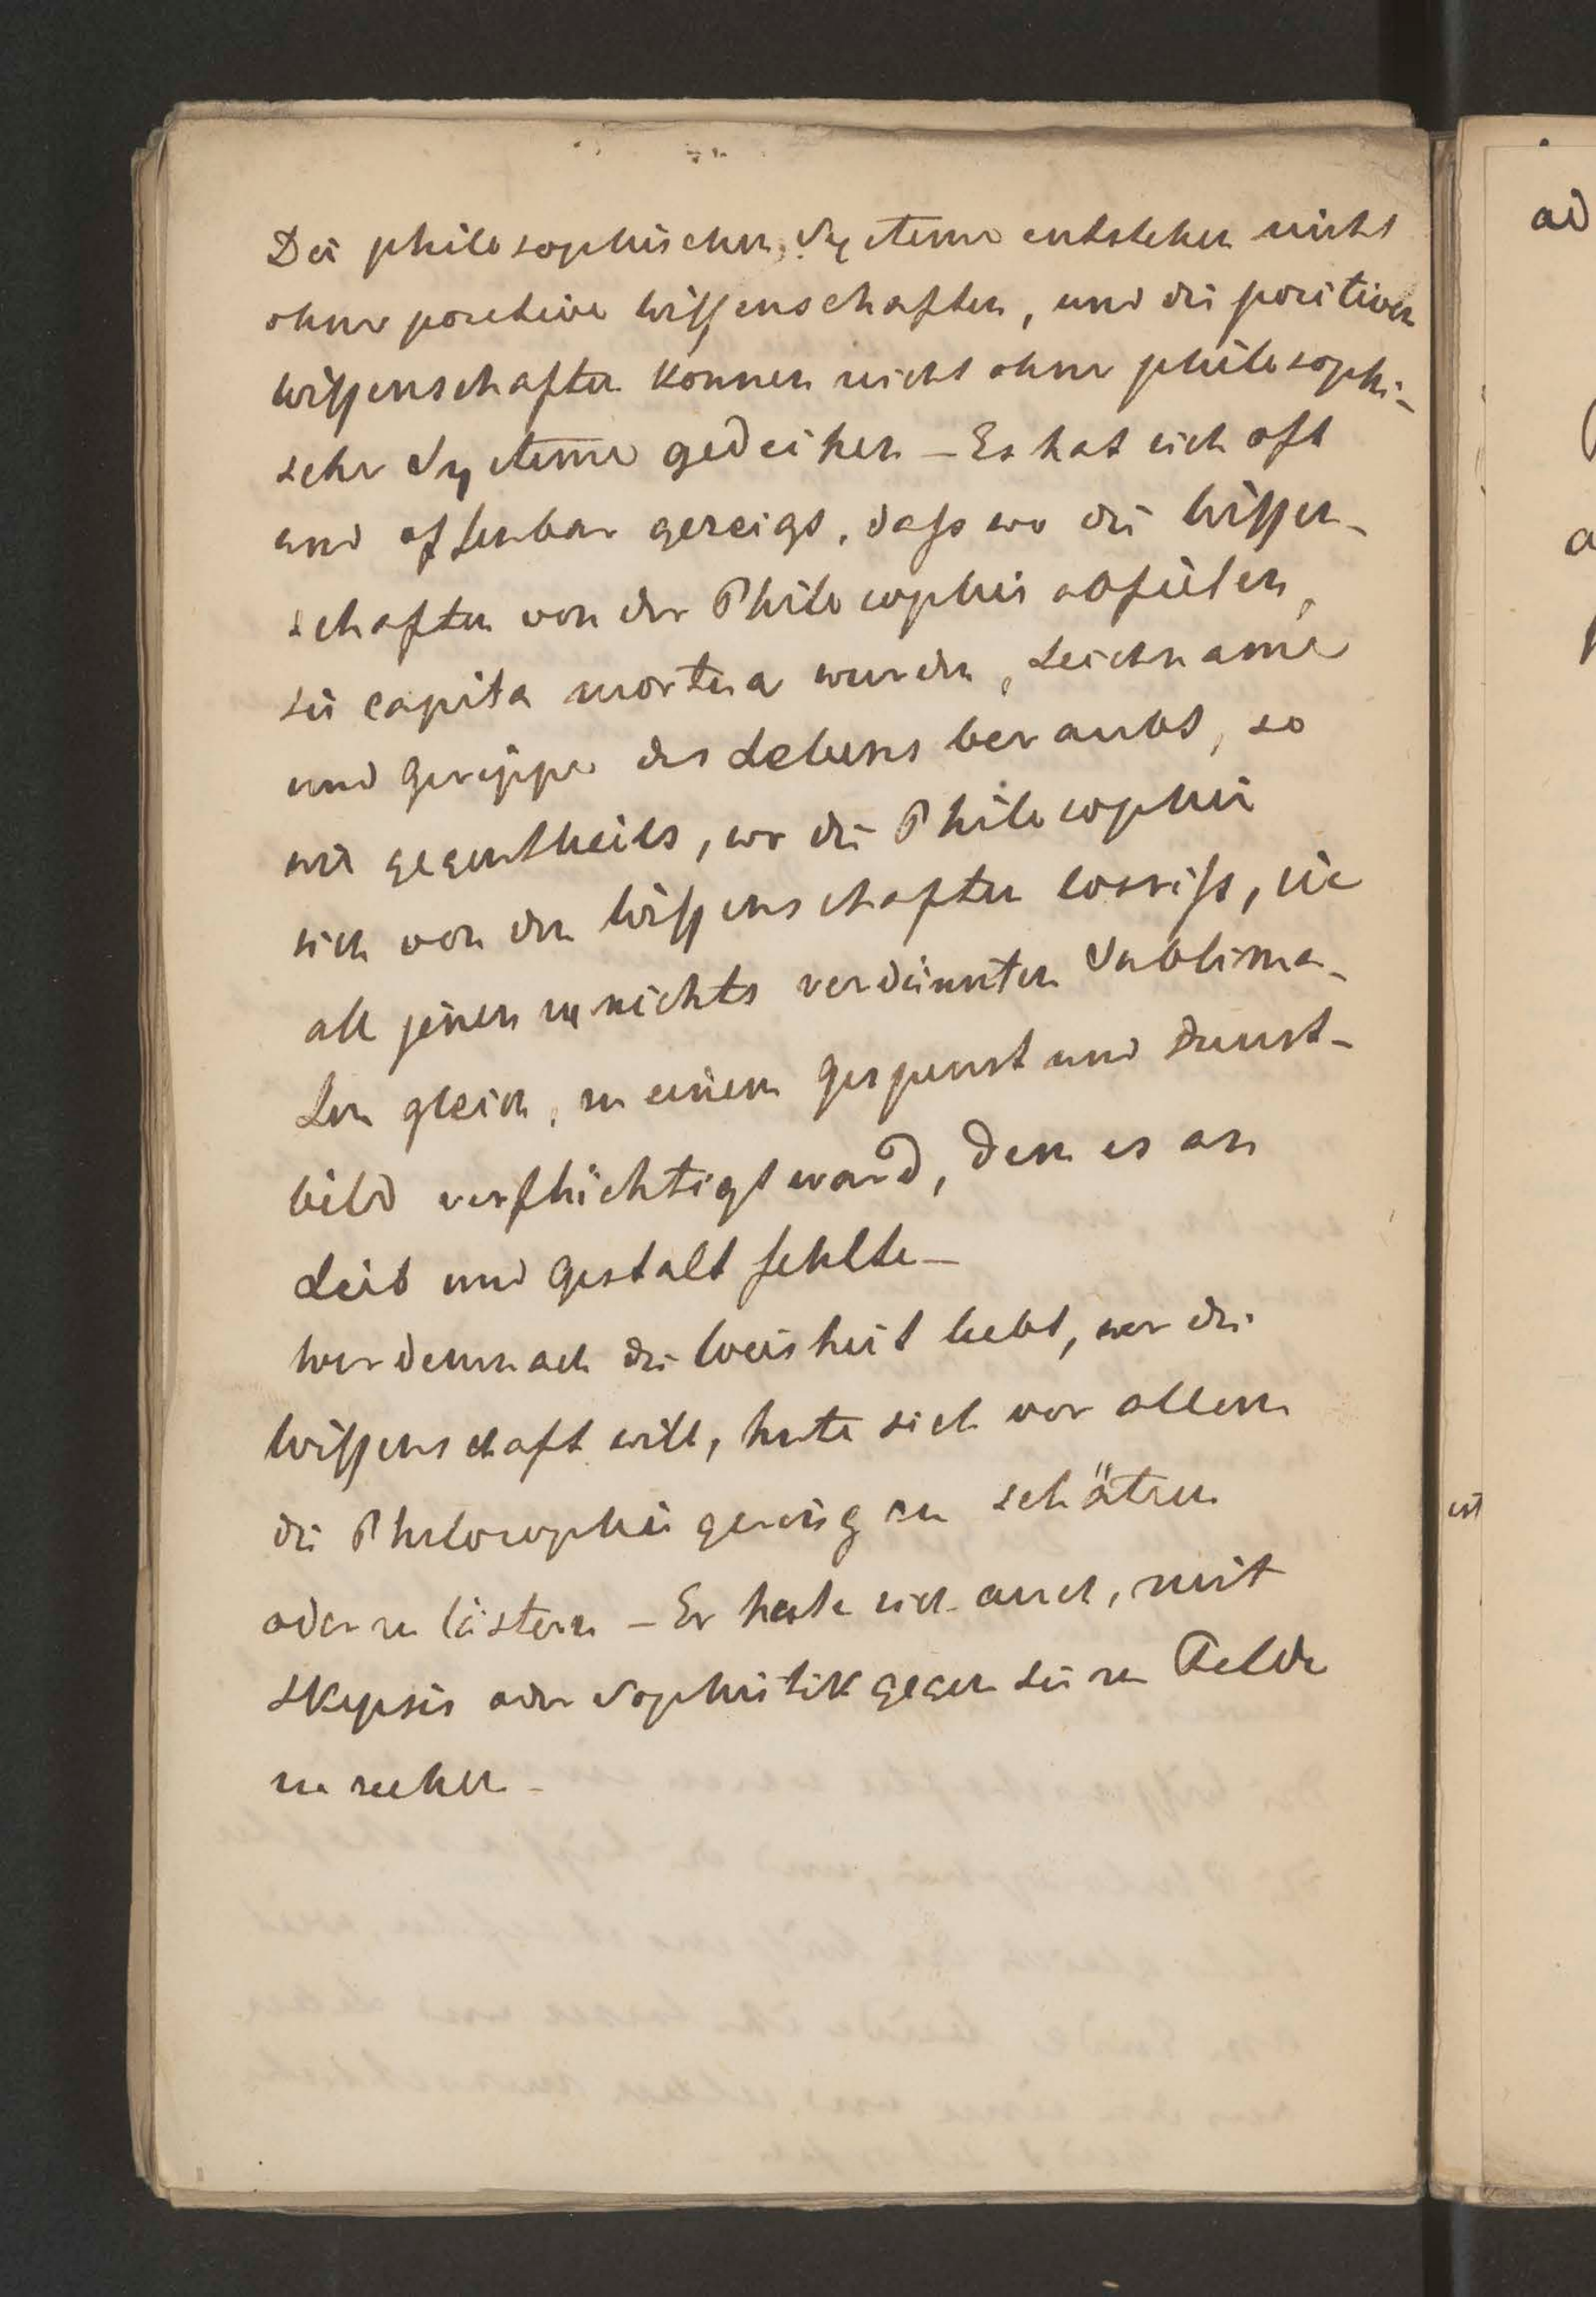 Die philosophischen Systeme entstehen nicht
ohne positive Wissenschaften, und die positiven
Wissenschaften können nicht ohne philosophi-
sche Systeme gedeihen – Es hat sich oft
und offenbar gezeigt, daß wo die Wissen-
schaften von der Philosophie abfielen,
sie capita mortua wurden, Leichname
und Gerippe des Lebens beraubt, so
wie gegentheils, wo die Philosophie
sich von den Wissenschaften losriß, sie
all jenen zu nichts verdünnten Sublima-
ten gleich, zu einem Gespenst und Dunst-
bild verflüchtigt ward, dem es an
Leib und Gestalt fehlte –
Wer demnach die Weisheit liebt, wer die
Wissenschaft will, hüte sich vor allem
die Philosophie gering zu schätzen
oder zu lästern – Er hüte sich auch, mit
Skepsis oder Sophistik gegen sie zu Felde
zu ziehen –
ad
ist